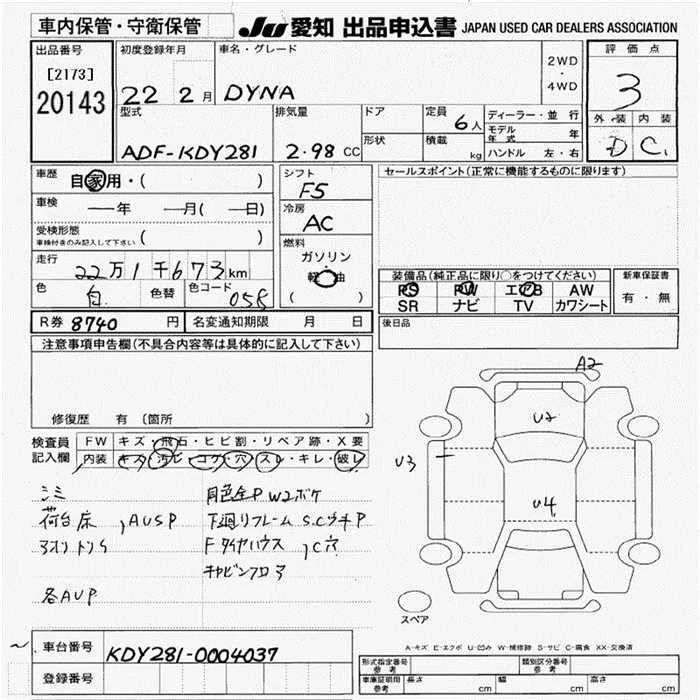 車内保管・守衛保管
JU 愛知 出品申込書 JAPAN USED CAR DEALERS ASSOCIATION
出品番号
[2173]
20143
初度登録年月
22 2月
車名・グレード
DYNA
2WD
・
4WD
評価点
3
外装 内装
D C
型式
ADF-KDY281
排気量
2.98 CC
ドア
形状
定員
6人
積載
kg
ディーラー・並行
モデル年式 年
ハンドル 左・右
車歴
自家用・( )
車検
—年 —月( —日)
受検形態
車検付きのみ記入して下さい ( )
走行
22万1千673km
色
白
色替
色コード
058
シフト
F5
冷房
AC
燃料
ガソリン
軽油
( )
セールスポイント(正常に機能するものに限ります)
装備品(純正品に限り○をつけてください)
PS PW エアB AW
SR ナビ TV カワシート
新車保証書
有・無
R券 8740 円
名変通知期限 月 日
後日品
注意事項申告欄(不具合内容等は具体的に記入して下さい)
修復歴 有 〔箇所 〕
検査員
記入欄
FW キズ・飛石・ヒビ割・リペア跡・X要
内装 キズ・汚レ・コゲ・穴・スレ・キレ・破レ
シミ
荷台床 , AUSP
アオリトリイ
各AUP
W2ボケ
下廻リフレーム S.C
Fタイヤハウス , C穴
キャビンフロア
A2
U2
U3
U4
スペア
A-キズ E-エクボ U-凹み W-補修跡 S-サビ C-腐食 XX-交換済
車台番号
KDY281-0004037
登録番号
形式指定番号
参考
類別区分番号
参考
車庫証明用
参考
長さ cm
幅 cm
高さ cm